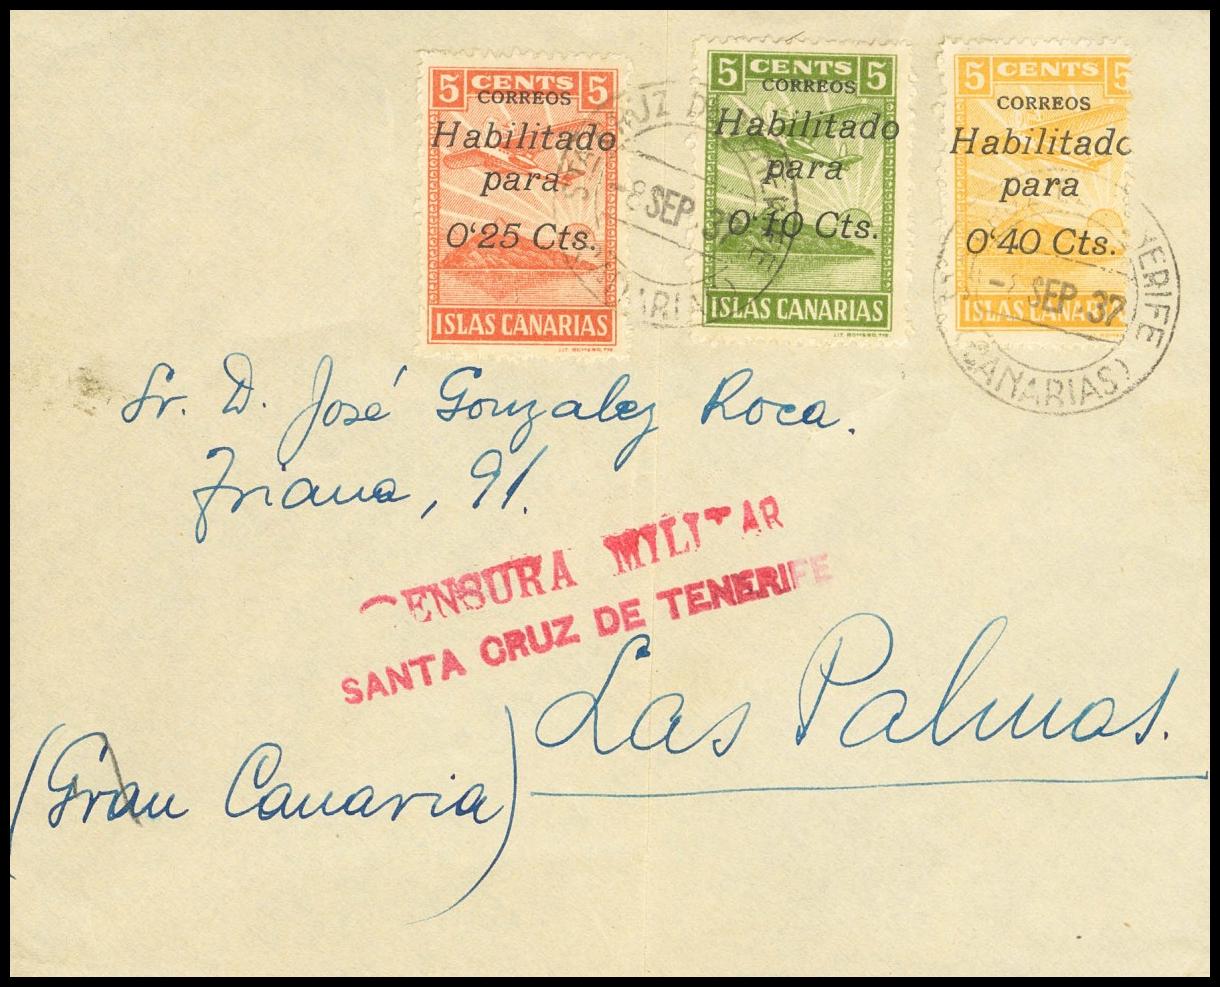 5 CENTS 5
CORREOS
Habilitado
para
0'25 Cts.
ISLAS CANARIAS
LIT. ROMERO, TFE
5 CENTS 5
CORREOS
Habilitado
para
0'10 Cts.
ISLAS CANARIAS
LIT. ROMERO, TFE
5 CENTS 5
CORREOS
Habilitado
para
0'40 Cts.
ISLAS CANARIAS
CRUZ DE
-8 SEP. 37
SEP. 37
(CANARIAS)
Sr. D. José Gonzalez Roca.
Triana, 91.
CENSURA MILITAR
SANTA CRUZ DE TENERIFE
Las Palmas.
(Gran Canaria)